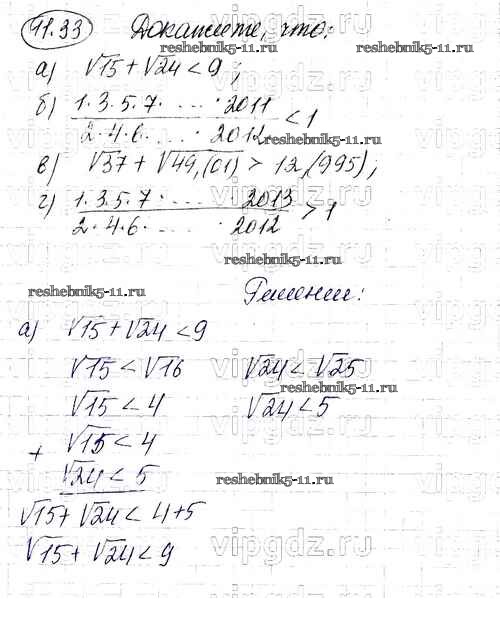 41.33 Докажите, что:
reshebnik5-11.ru reshebnik5-11.ru
а) √15 + √24 < 9;
б) 1·3·5·7· .... ·2011 / 2·4·6· .... ·2012 < 1
reshebnik5-11.ru
в) √37 + √49,(01) > 12,(995);
г) 1·3·5·7· .... ·2013 / 2·4·6· .... ·2012 > 1
reshebnik5-11.ru
reshebnik5-11.ru Решение:
а) √15 + √24 < 9
√15 < √16 √24 < √25
reshebnik5-11.ru
√15 < 4 √24 < 5
+ √15 < 4
√24 < 5
reshebnik5-11.ru
√15 + √24 < 4+5
√15 + √24 < 9
vipgdz.ru